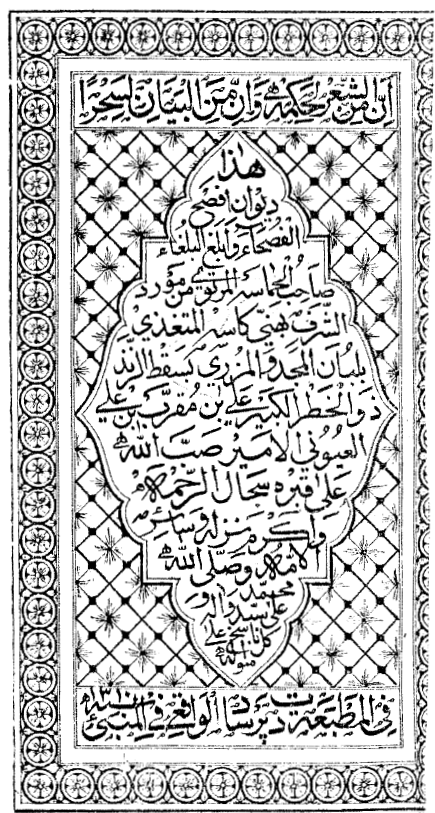 إن من الشعر لحكمة وإن من البيان لسحرا
هذا
ديوان افصح
الفصحاء وابلغ البلغاء
صاحب الحماسة المرتوي من مورد
الشرف بهني كاسه المتغذي
بلبان المجد و المزري بسقط الزند
ذو الخطر الكبير علي بن مقرب بن علي
العيوني الامير صب الله
على قبره سجال الرحمة
واكرم منزله وسائر
الائمة وصلى الله
على سيدنا محمد واله و
كل ناسج على
منواله
في المطبعة دت پرساد الواقع في المنبئ سنة ١٣١٠